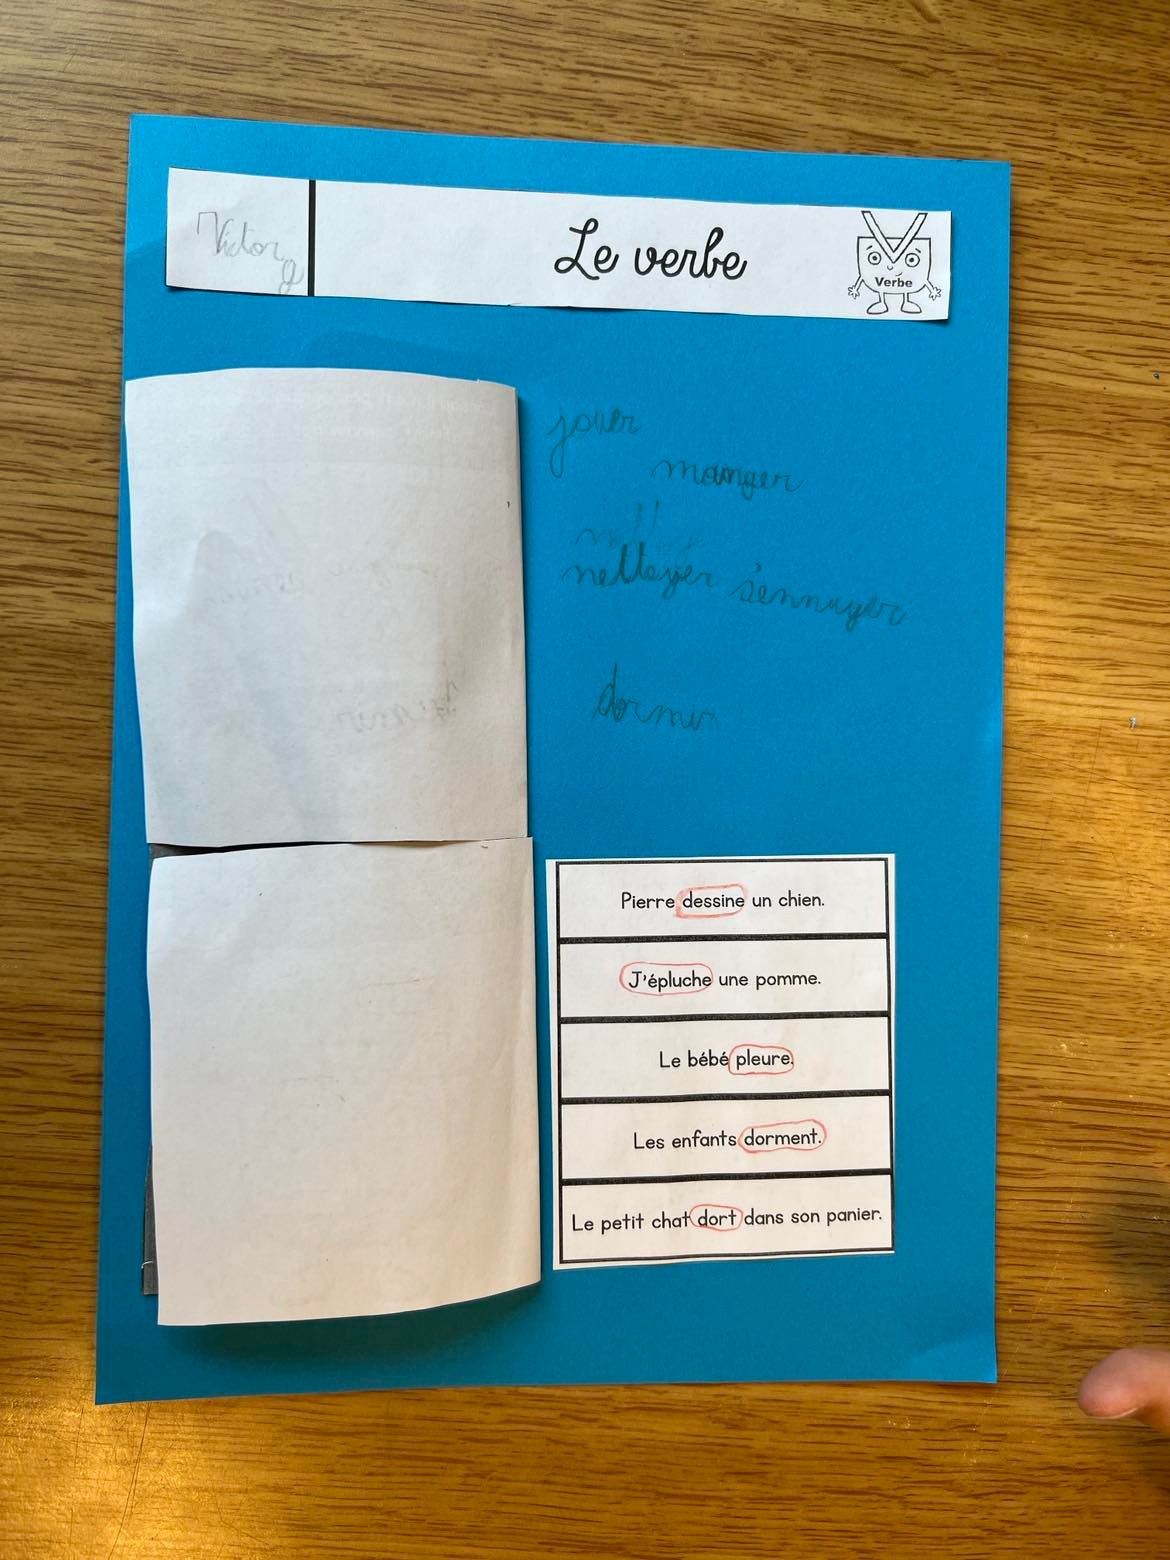 Victor g
Le verbe
Verbe
jouer
manger
nettoyer s'ennuyer
dormir
Pierre dessine un chien.
J'épluche une pomme.
Le bébé pleure.
Les enfants dorment.
Le petit chat dort dans son panier.